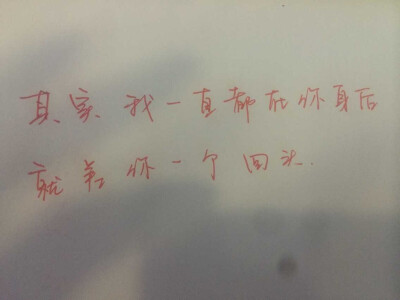 其实我一直都在你身后
就差你一个回头.